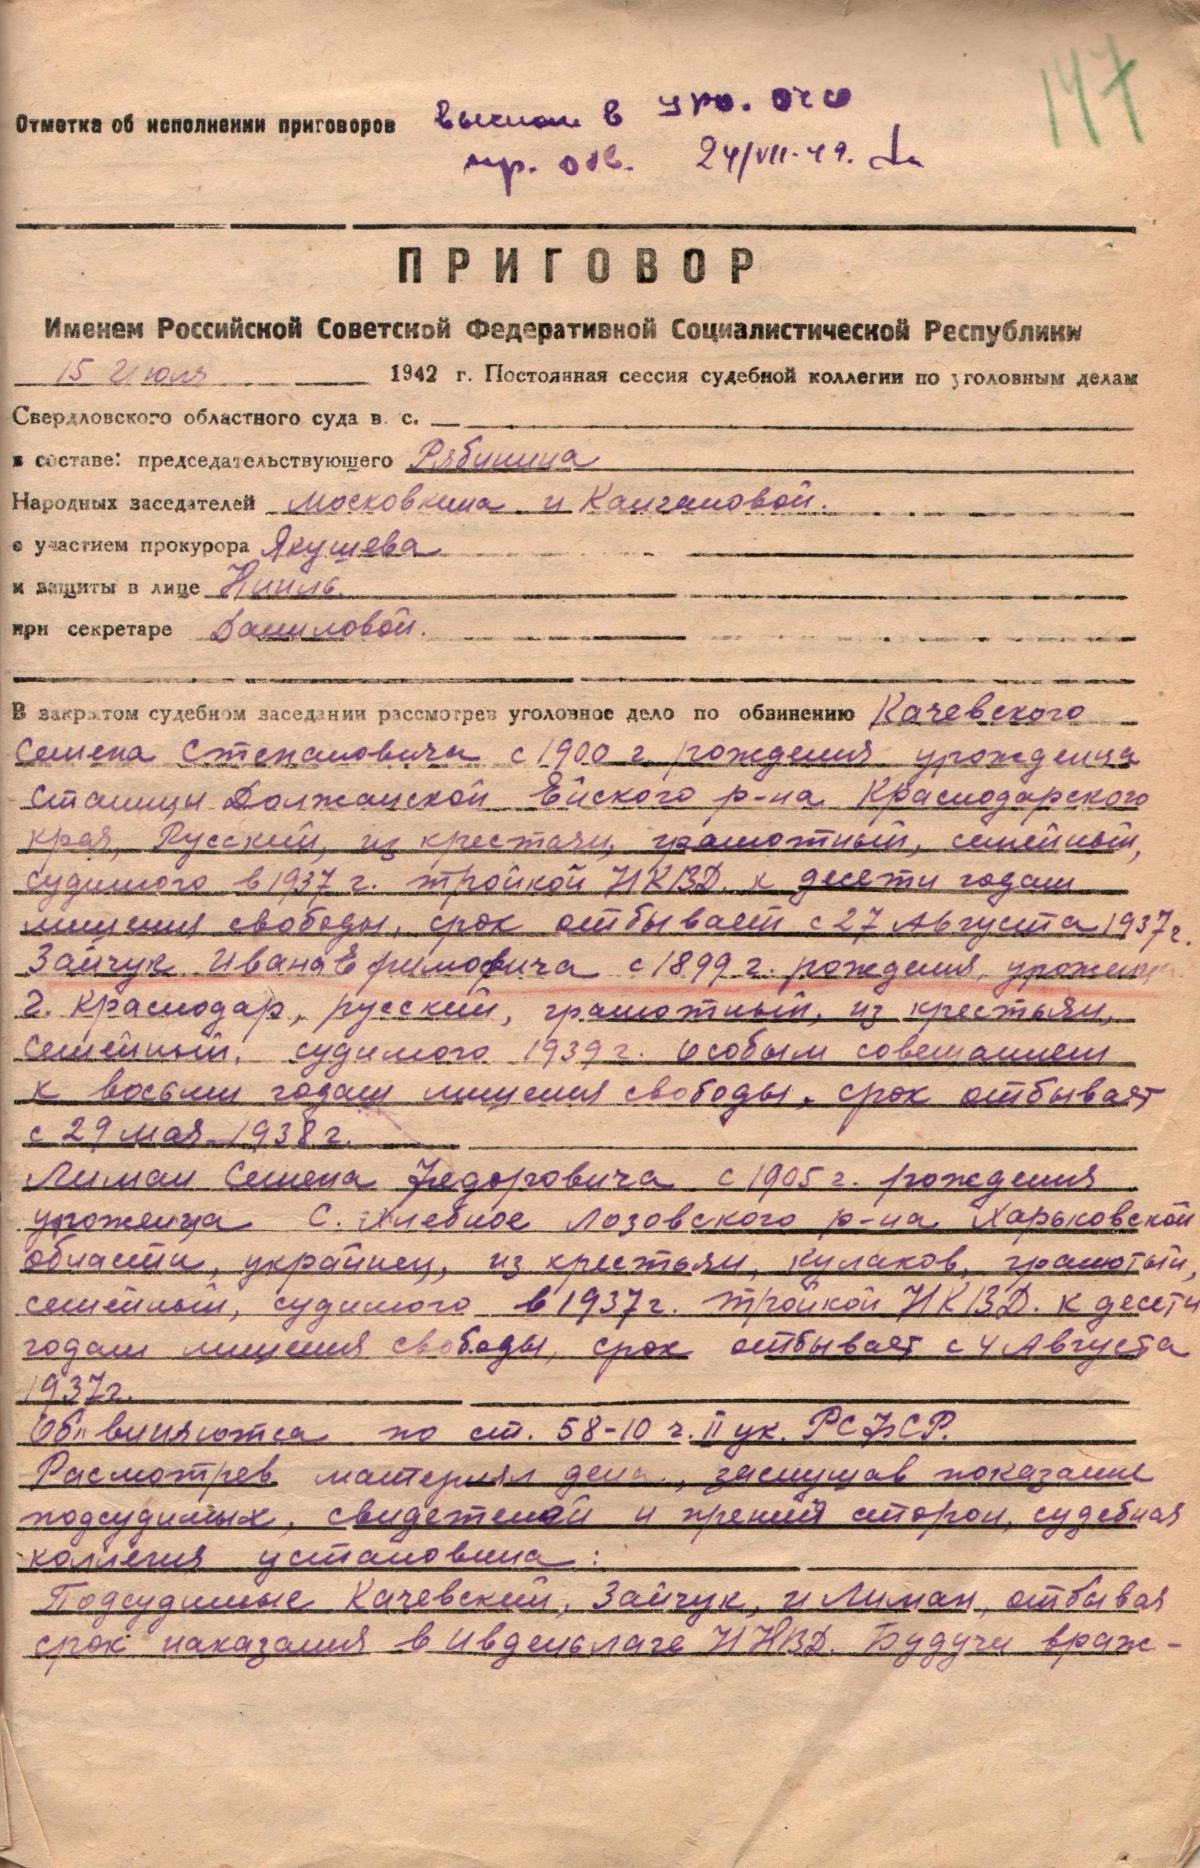 147
Отметка об исполнении приговоров в
24/VII-49.
ПРИГОВОР
Именем Российской Советской Федеративной Социалистической Республики
15 Июля 1942 г. Постоянная сессия судебной коллегии по уголовным делам
Свердловского областного суда в с.
в составе: председательствующего Рябинина
Народных заседателей Московкина и
с участием прокурора Якушева
и защиты в лице
при секретаре Даниловой.
В закрытом судебном заседании рассмотрев уголовное дело по обвинению Качевского
Семена Степановича с 1900 г. рождения урожденца
станицы Должанской Ейского р-на Краснодарского
края, Русский, из крестьян, грамотный, семейный,
судимого в 1937 г. тройкой НКВД. к десети годам
лишения свободы, срок отбывает с 27 Августа 1937 г.
Зайчук Ивана Ефимовича с 1899 г. рождения,
г. Краснодар, русский, грамотный, из крестьян,
семейный, судимого 1939 г. особым совещанием
к восьми годам лишения свободы, срок отбывает
с 29 мая 1938 г.
Лиман Семена Федоровича с 1905 г. рождения
уроженца С. Хлебное Лозовского р-на Харьковской
области, украинец, из крестьян, кулаков, грамотый,
семейный, судимого в 1937 г. тройкой НКВД. к десети
годам лишения свободы, срок отбывает с 4 Августа
1937 г.
Обвиняются по ст. 58-10 ч. II ук. РСФСР.
Расмотрев материял дела, заслушав показание
подсудимых, свидетелей и прений сторон, судебная
коллегия установила:
Подсудимые Качевский, Зайчук, и Лиман, отбывая
срок наказания в Ивдельлаге НКВД. Будучи враж-